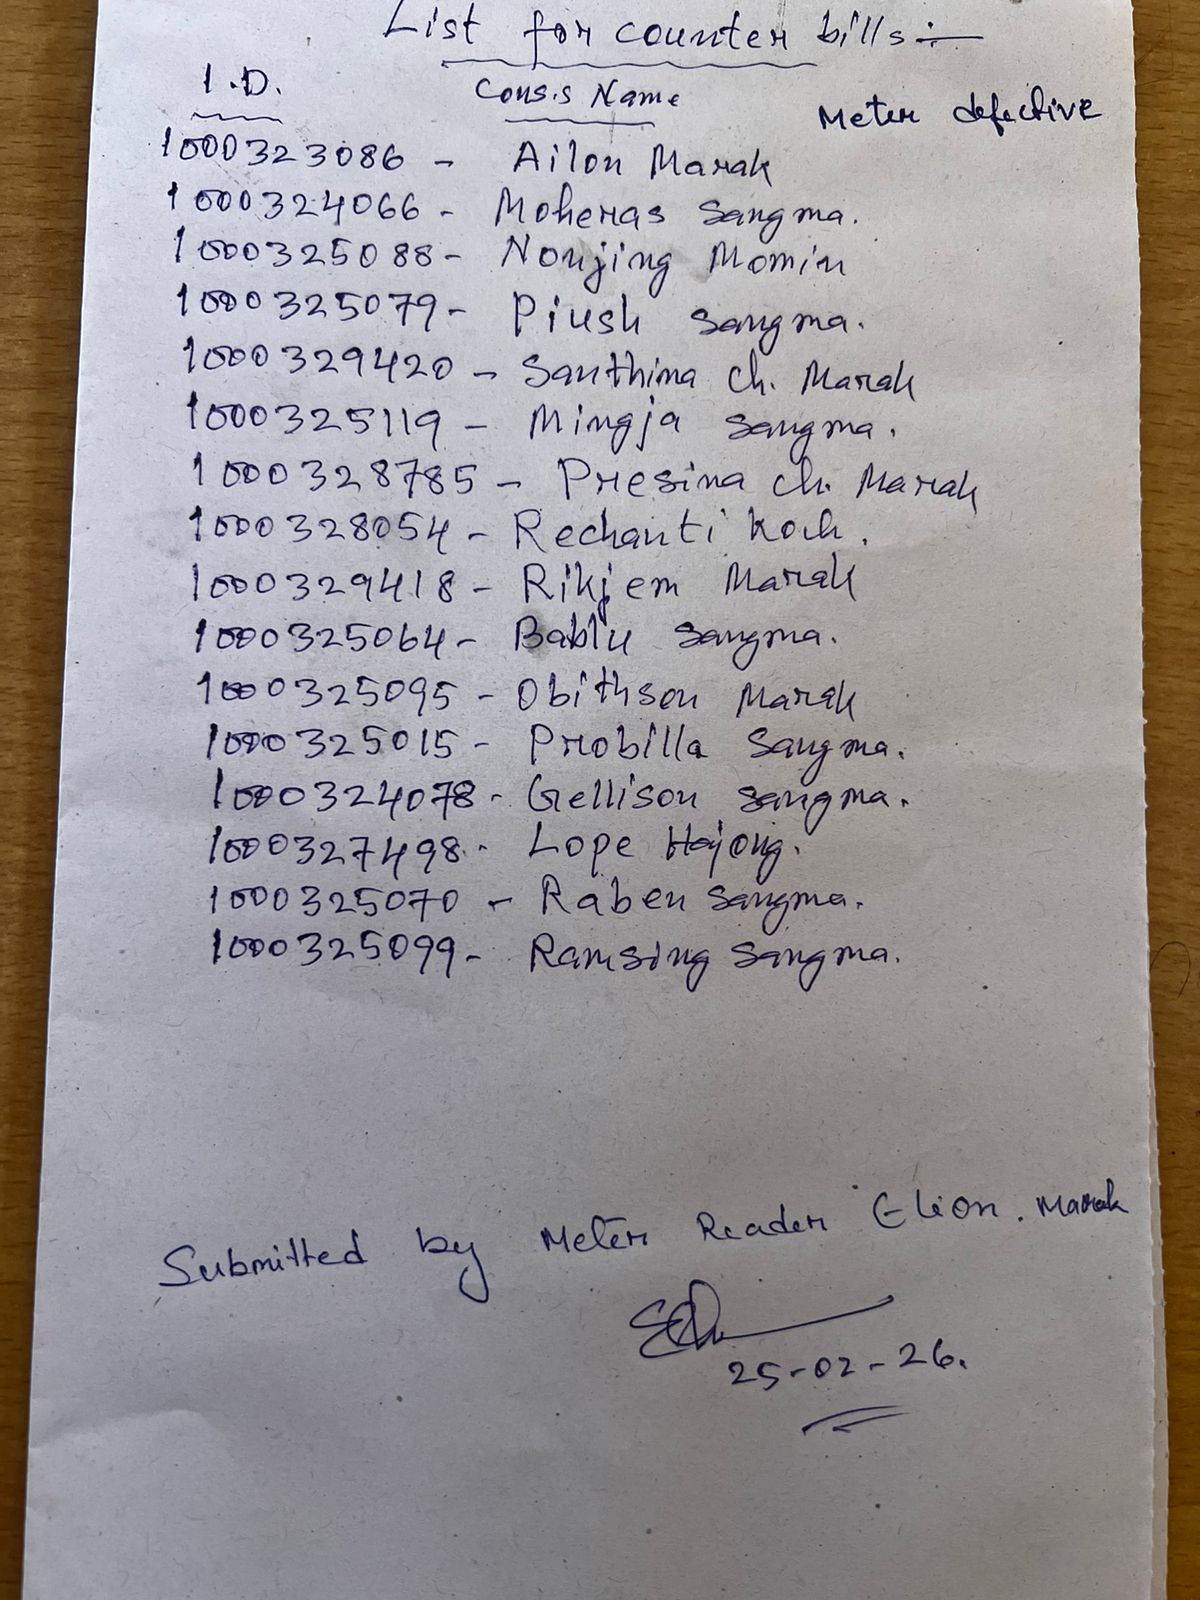 List for counter bills :-
I.D. Cons.s Name Meter defective
1000323086 - Ailon Marak
1000324066 - Moheras Sangma.
1000325088 - Nonjing Momin
1000325079 - Piush Sangma.
1000329420 - Santhina Ch. Marak
1000325119 - Mingja Sangma.
1000328785 - Presina Ch. Marak
1000328054 - Rechanti Koch.
1000329418 - Rikjem Marak
1000325064 - Bablu Sangma.
1000325095 - Obithson Marak
1000325015 - Probilla Sangma.
1000324078 - Gellison Sangma.
1000327498 - Lope Hajong.
1000325070 - Raben Sangma.
1000325099 - Ramsing Sangma.
Submitted by Meter Reader Elion. Marak
25-02-26.